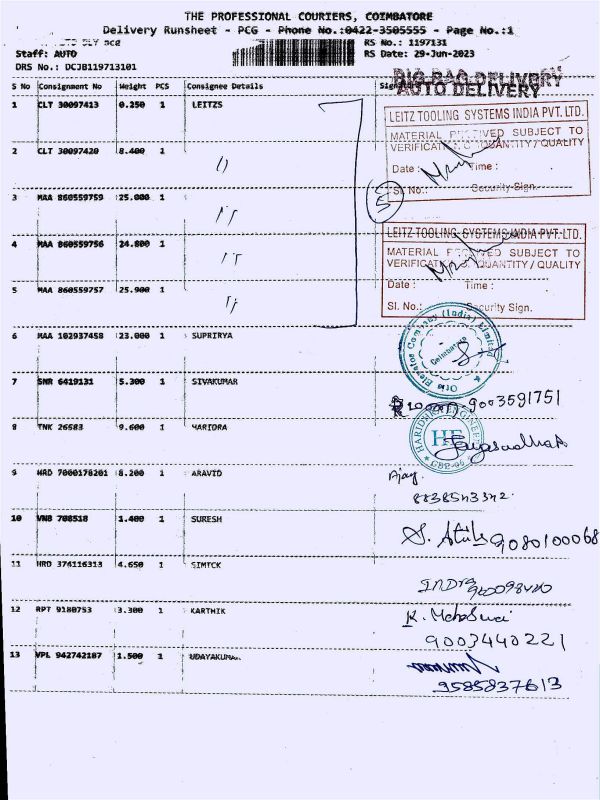 THE PROFESSIONAL COURIERS, COIMBATORE
Delivery Runsheet - PCG - Phone No.:0422-3505555 - Page No.:1
RS No.: 1197131
Staff: AUTO
RS Date: 29-Jun-2023
DRS No.: DCJB119713101
BIG BAG DELIVERY
AUTO DELIVERY
S No Consignment No Weight PCS Consignee Details Sign
1 CLT 30097413 0.250 1 LEITZS
2 CLT 30097420 8.400 1 ''
3 MAA 860559759 25.000 1 ''
4 MAA 860559756 24.800 1 ''
5 MAA 860559757 25.900 1 ''
5
LEITZ TOOLING SYSTEMS INDIA PVT. LTD.
MATERIAL RECEIVED SUBJECT TO
VERIFICATION QUANTITY / QUALITY
Date : Time :
Sl. No.: Security Sign.
LEITZ TOOLING SYSTEMS INDIA PVT. LTD.
MATERIAL RECEIVED SUBJECT TO
VERIFICATION QUANTITY / QUALITY
Date : Time :
Sl. No.: Security Sign.
6 MAA 102937458 23.000 1 SUPRIRYA
Otis Elevator Company (India) Limited
Coimbatore
7 SNR 6419131 5.300 1 SIVAKUMAR
9003591751
8 TNK 26583 9.600 1 HARIDRA
HE
9 HRD 7060178201 8.200 1 ARAVID
Ajay
8838543342
10 VNB 708518 1.400 1 SURESH
9080100068
11 HRD 374116313 4.650 1 SIMTCK
INDra
12 RPT 9180753 3.300 1 KARTHIK
9003440221
13 VPL 942742187 1.500 1 UDAYAKUMAR
9585837613